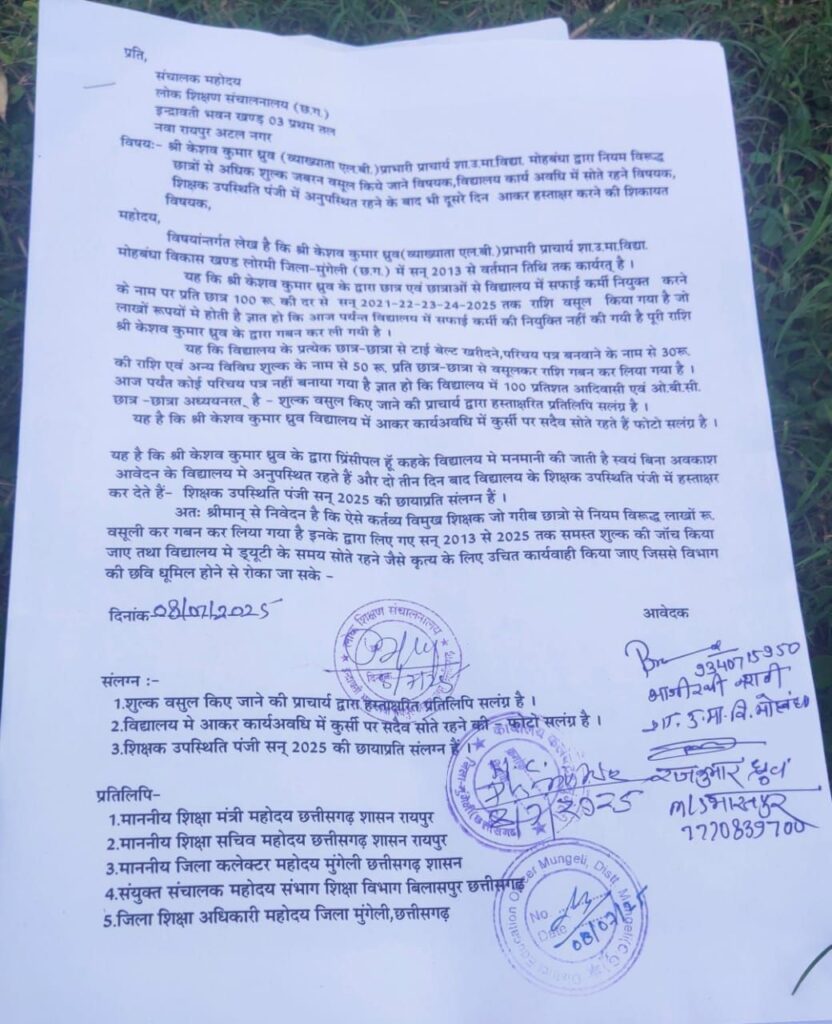 प्रति,
संचालक महोदय
लोक शिक्षण संचालनालय (छ.ग.)
इन्द्रावती भवन खण्ड 03 प्रथम तल
नवा रायपुर अटल नगर
विषयः- श्री केशव कुमार ध्रुव (व्याख्याता एल.बी.)प्राभारी प्राचार्य शा.उ.मा.विद्या. मोहबंधा द्वारा नियम विरूद्ध
छात्रों से अधिक शुल्क जबरन वसूल किये जाने विषयक,विद्यालय कार्य अवधि में सोते रहने विषयक,
शिक्षक उपस्थिति पंजी में अनुपस्थित रहने के बाद भी दूसरे दिन आकर हस्ताक्षर करने की शिकायत
विषयक,
महोदय,
विषयांन्तर्गत लेख है कि श्री केशव कुमार ध्रुव(व्याख्याता एल.बी.)प्राभारी प्राचार्य शा.उ.मा.विद्या.
मोहबंधा विकास खण्ड लोरमी जिला-मुंगेली (छ.ग.) में सन् 2013 से वर्तमान तिथि तक कार्यरत् है ।
यह कि श्री केशव कुमार ध्रुव के द्वारा छात्र एवं छात्राओं से विद्यालय में सफाई कर्मी नियुक्त करने
के नाम पर प्रति छात्र 100 रू. की दर से सन् 2021-22-23-24-2025 तक राशि वसूल किया गया है जो
लाखों रूपयों मे होती है ज्ञात हो कि आज पर्यन्त विद्यालय में सफाई कर्मी की नियुक्ति नहीं की गयी है पूरी राशि
श्री केशव कुमार ध्रुव के द्वारा गबन कर ली गयी है ।
यह कि विद्यालय के प्रत्येक छात्र-छात्रा से टाई बेल्ट खरीदने,परिचय पत्र बनवाने के नाम से 30रू.
की राशि एवं अन्य विविध शुल्क के नाम से 50 रू. प्रति छात्र-छात्रा से वसूलकर राशि गबन कर लिया गया है ।
आज पर्यंत कोई परिचय पत्र नहीं बनाया गया है ज्ञात हो कि विद्यालय में 100 प्रतिशत आदिवासी एवं ओ.बी.सी.
छात्र -छात्रा अध्ययनरत् है - शुल्क वसुल किए जाने की प्राचार्य द्वारा हस्ताक्षरित प्रतिलिपि सलंग्र है ।
यह है कि श्री केशव कुमार ध्रुव विद्यालय में आकर कार्यअवधि में कुर्सी पर सदैव सोते रहते हैं फोटो सलंग्र है ।
यह है कि श्री केशव कुमार ध्रुव के द्वारा प्रिंसीपल हूँ कहके विद्यालय मे मनमानी की जाती है स्वयं बिना अवकाश
आवेदन के विद्यालय मे अनुपस्थित रहते हैं और दो तीन दिन बाद विद्यालय के शिक्षक उपस्थिति पंजी में हस्ताक्षर
कर देते हैं- शिक्षक उपस्थिति पंजी सन् 2025 की छायाप्रति संलग्न हैं ।
अतः श्रीमान् से निवेदन है कि ऐसे कर्तव्य विमुख शिक्षक जो गरीब छात्रो से नियम विरूद्ध लाखों रू.
वसूली कर गबन कर लिया गया है इनके द्वारा लिए गए सन् 2013 से 2025 तक समस्त शुल्क की जाँच किया
जाए तथा विद्यालय मे ड्यूटी के समय सोते रहने जैसे कृत्य के लिए उचित कार्यवाही किया जाए जिससे विभाग
की छवि धूमिल होने से रोका जा सके -
दिनांक-08/07/2025
आवेदक
9340715950
शा. उ. मा. वि. मोहबंधा
संलग्न :-
1.शुल्क वसुल किए जाने की प्राचार्य द्वारा हस्ताक्षरित प्रतिलिपि सलंग्र है ।
2.विद्यालय मे आकर कार्यअवधि में कुर्सी पर सदैव सोते रहने की - फोटो सलंग्र है ।
3.शिक्षक उपस्थिति पंजी सन् 2025 की छायाप्रति संलग्न हैं ।
राजकुमार ध्रुव
7770839700
प्रतिलिपि-
1.माननीय शिक्षा मंत्री महोदय छत्तीसगढ़ शासन रायपुर
2.माननीय शिक्षा सचिव महोदय छत्तीसगढ़ शासन रायपुर
3.माननीय जिला कलेक्टर महोदय मुंगेली छत्तीसगढ़ शासन
4.संयुक्त संचालक महोदय संभाग शिक्षा विभाग बिलासपुर छत्तीसगढ़
5.जिला शिक्षा अधिकारी महोदय जिला मुंगेली,छत्तीसगढ़
लोक शिक्षण संचालनालय
8/7/2025
District Education Officer Mungeli, Distt. Mungeli(C.G.)
No
Date 08/07/25